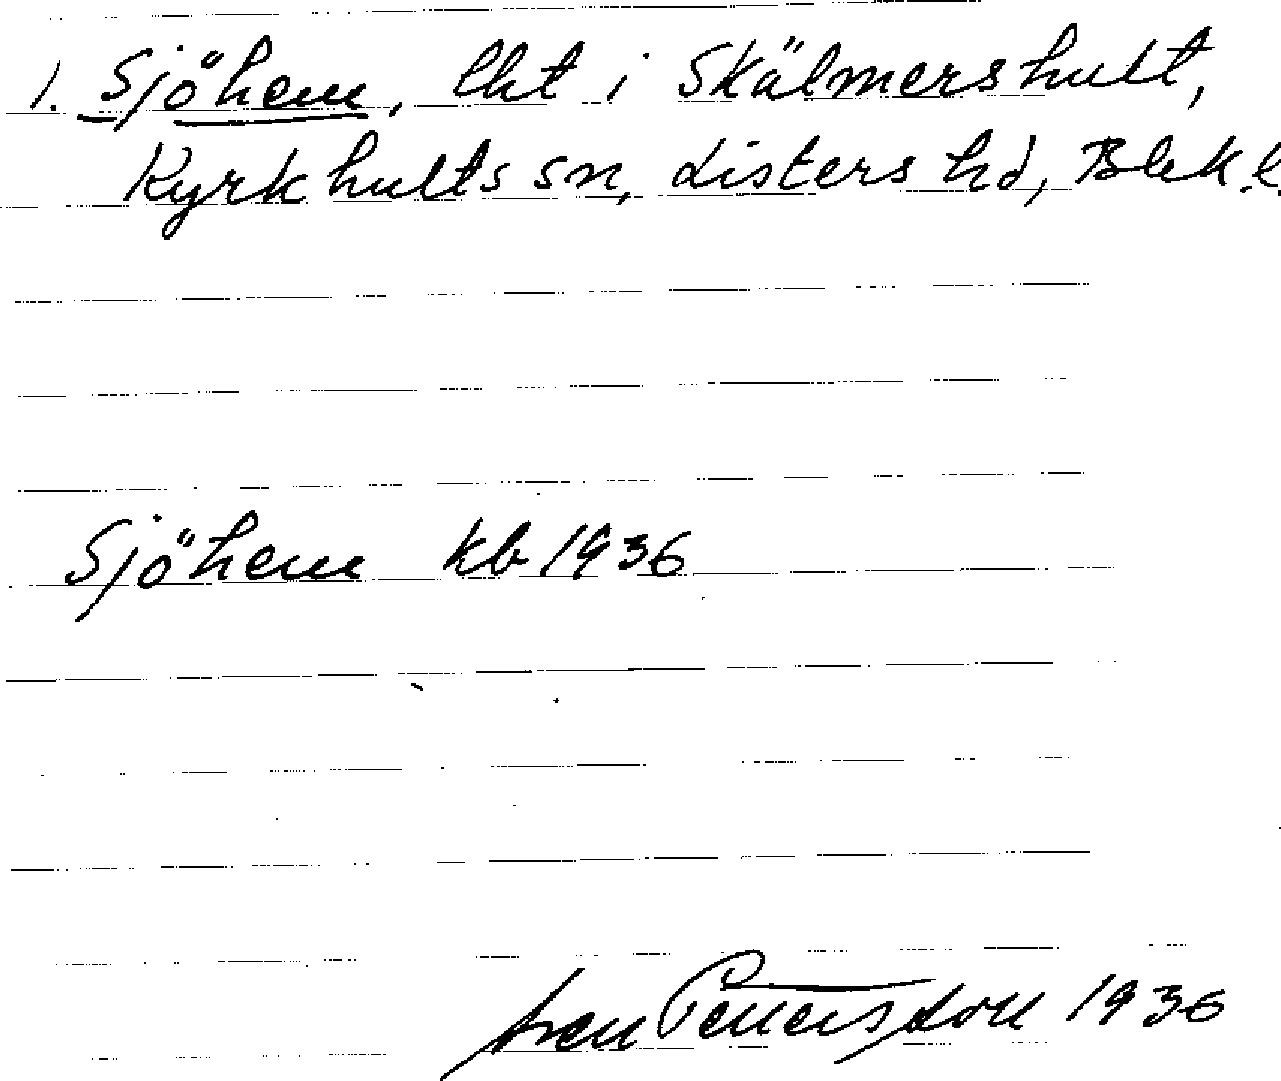 1. Sjöhem, lht i Skälmershult,
Kyrkhults sn, Listers hd, Blek. l.
Sjöhem kb 1936
Pettersson 1936